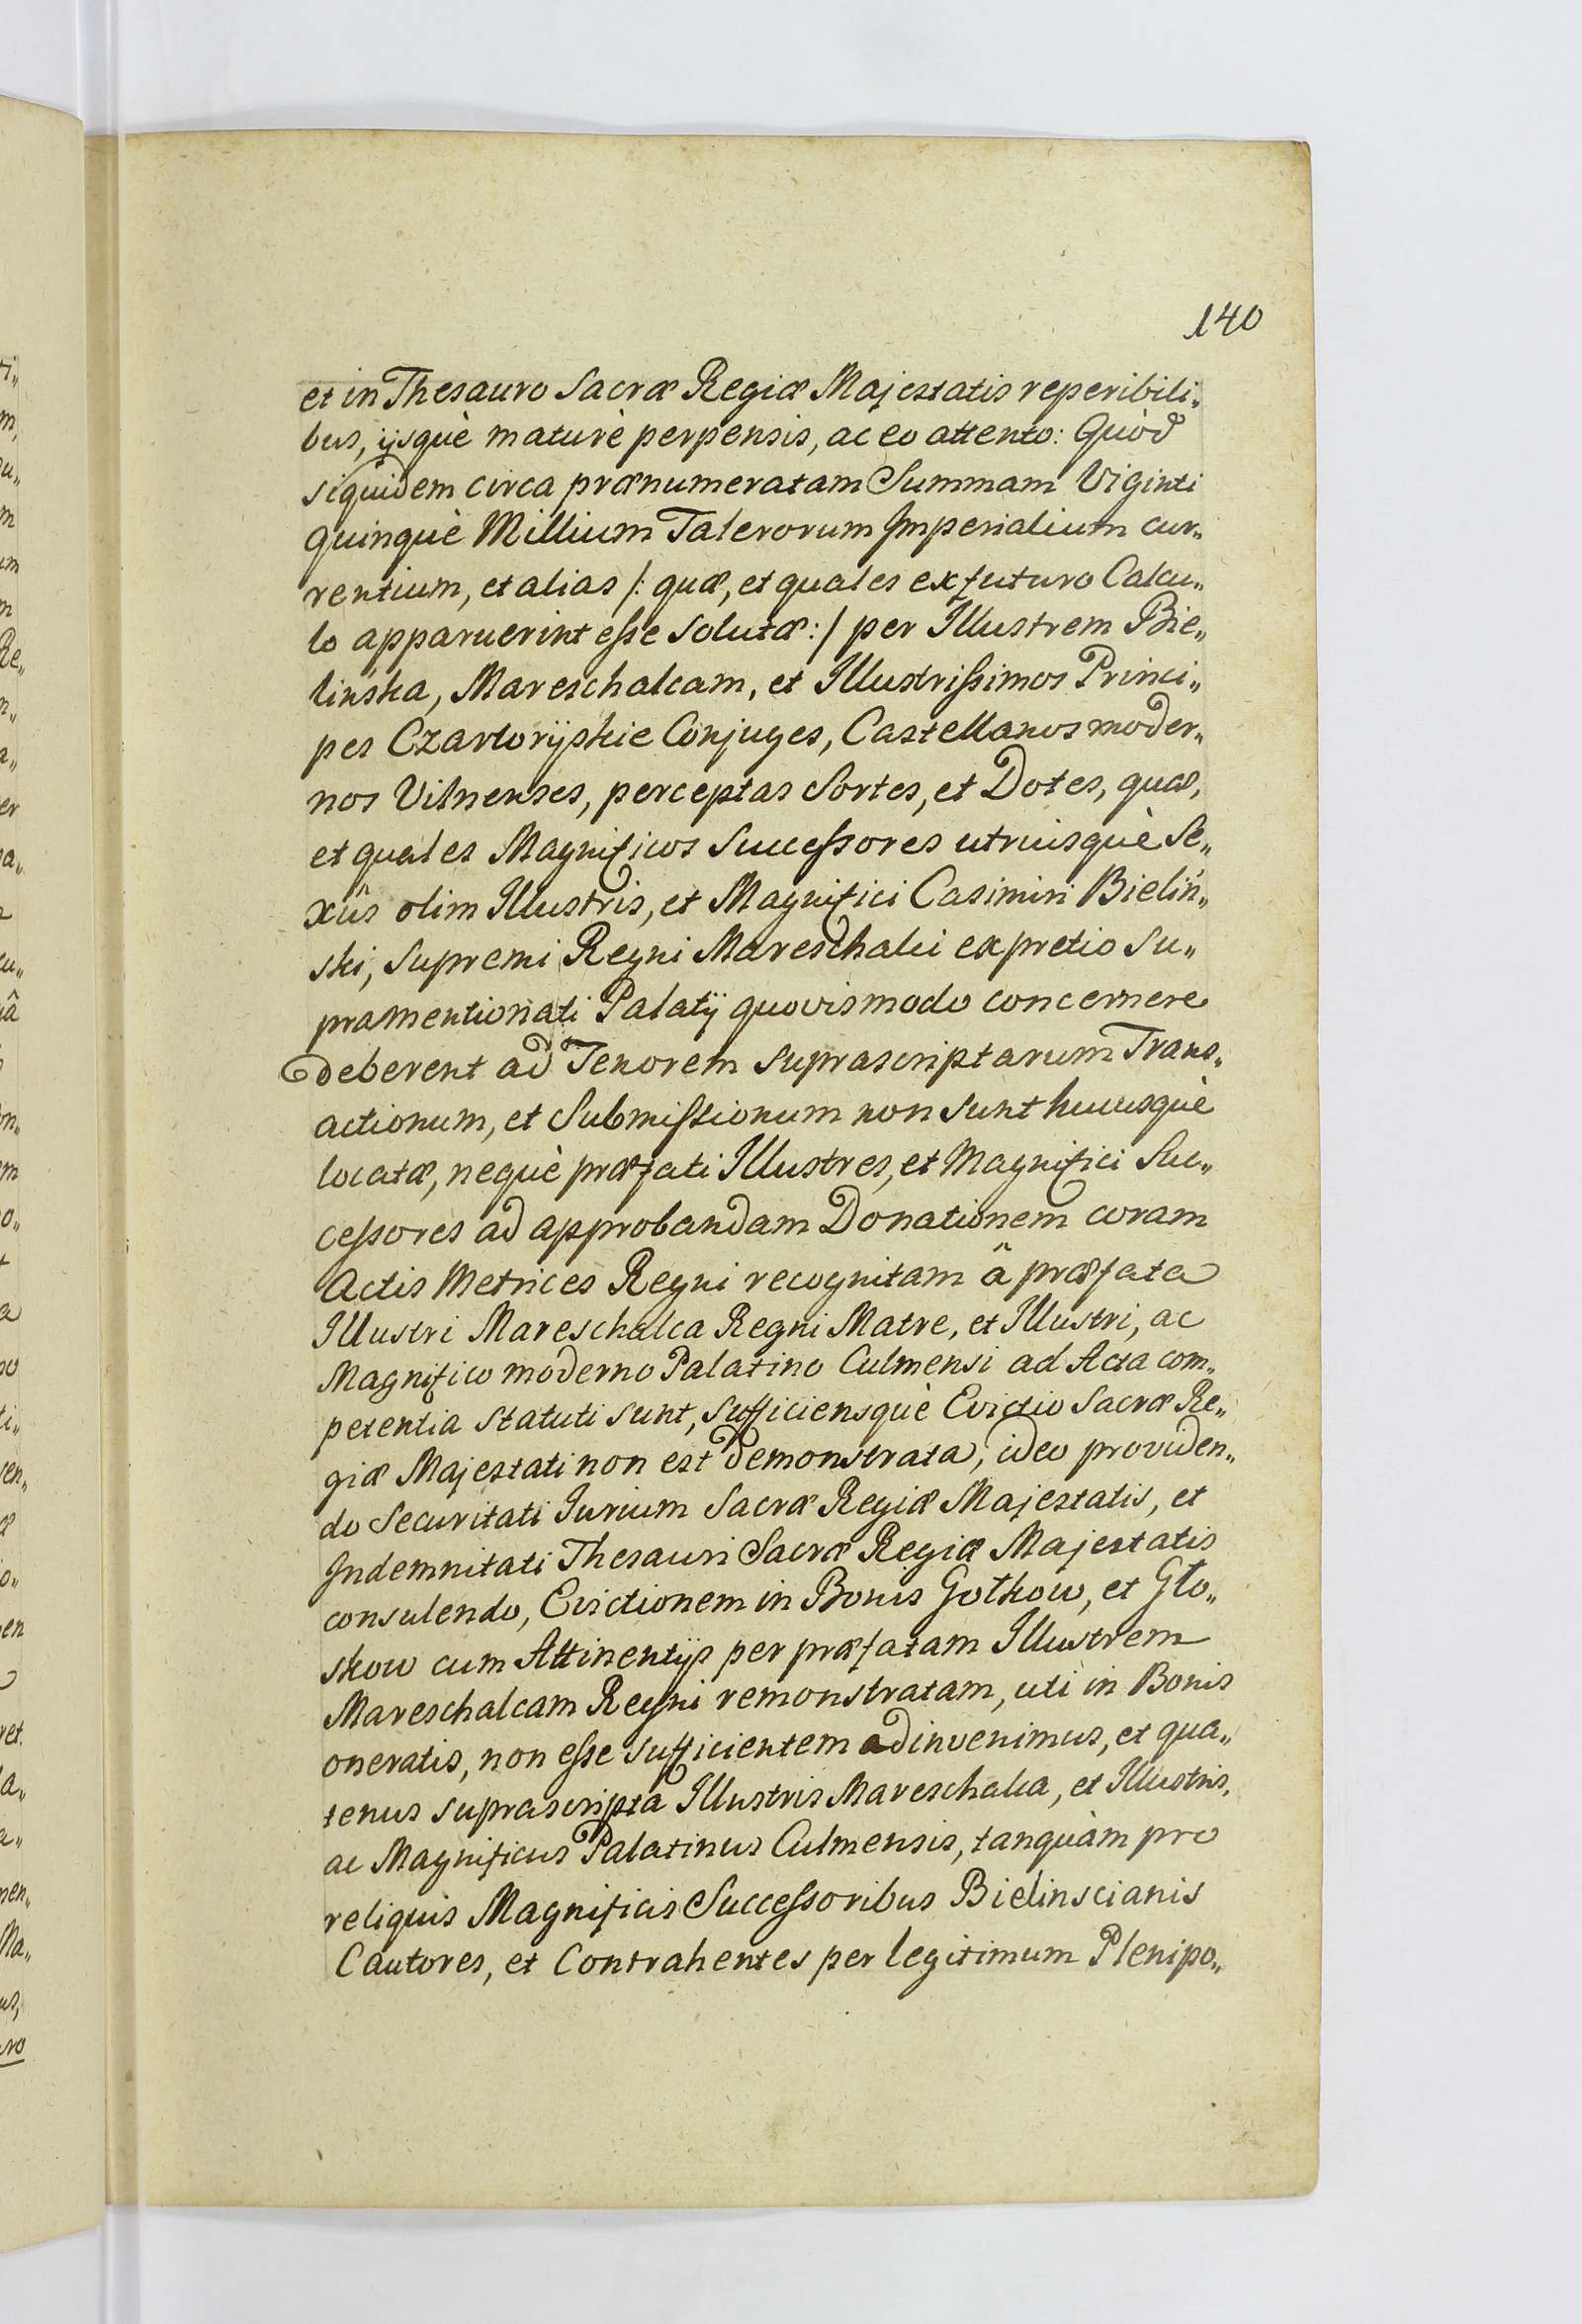 140
et in Thesauro Sacræ Regiæ Majestatis reperibili„
bus, ijsquè maturè perpensis, ac eo attento: Quòd
siquidem circa prænumeratam Summam Viginti
quinquè Millium Talerorum Imperialium cur„
rentium, et alias /: quæ, et quales ex futuro Calcu„
lo apparuerint eſse solutæ :/ per Illustrem Bie„
lińska, Mareschalcam, et Illustriſsimos Princi„
pes Czartoryskie Conjuges, Castellanos moder„
nos Vilnenses, perceptas Sortes, et Dotes, quæ,
et quales Magnificos Succeſsores utriusquè Se„
xûs olim Illustris, et Magnifici Casimiri Bieliń„
ski, Supremi Regni Mareschalci ex pretio su„
pramentionati Palatij quovismodo concernere
deberent ad Tenorem suprascriptarum Trans„
actionum, et Submiſsionum non sunt hucusquè
locatæ, nequè præfati Illustres, et Magnifici Suc„
ceſsores ad approbandam Donationem coram
Actis Metrices Regni recognitam â præfata
Illustri Mareschalca Regni Matre, et Illustri, ac
Magnifico moderno Palatino Culmensi ad Acta com„
petentia statuti sunt, sufficiensquè Evictio Sacræ Re„
giæ Majestati non est demonstrata, ideo providen„
do Securitati Jurium Sacræ Regiæ Majestatis, et
Indemnitati Thesauri Sacræ Regiæ Majestatis
consulendo, Evictionem in Bonis Gołkow, et Gło„
skow cum Attinentijs per præfatam Illustrem
Mareschalcam Regni remonstratam, uti in Bonis
oneratis, non eſse sufficientem adinvenimus, et qua„
tenus suprascripta Illustris Mareschalca, et Illustris,
ac Magnificus Palatinus Culmensis, tanquàm pro
reliquis Magnificis Succeſsoribus Bielinscianis
Cautores, et Contrahentes per legitimum Plenipo„